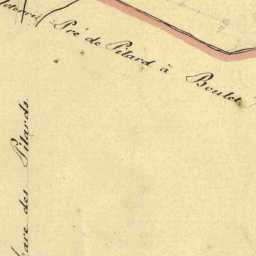 Pré de Pilard à Boulet
des Pilards